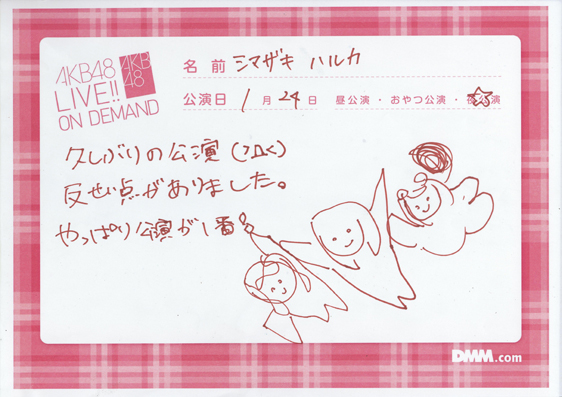 AKB48
LIVE!!
ON DEMAND
AKB
48
名前 シマザキ ハルカ
公演日 1月24日 昼公演・おやつ公演・夜公演
久しぶりの公演(泣)
反せい点がありました。
やっぱり公演が1番
DMM.com